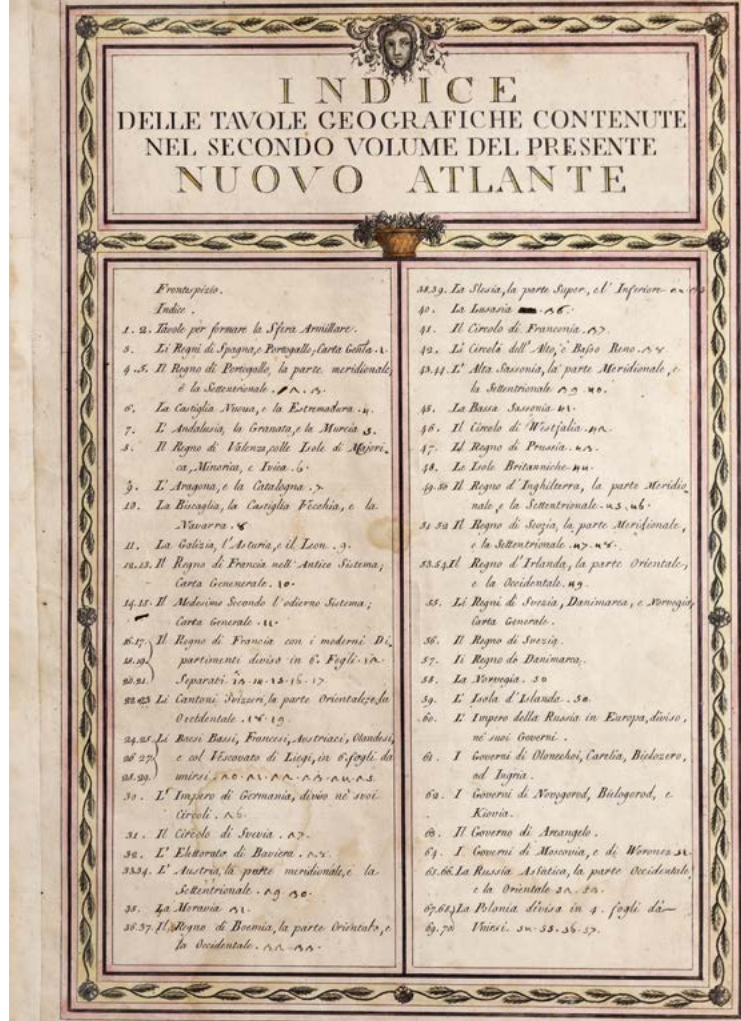 INDICE
DELLE TAVOLE GEOGRAFICHE CONTENUTE
NEL SECONDO VOLUME DEL PRESENTE
NUOVO ATLANTE
Frontispizio.
Indice.
1. 2. Tavole per formare la Sfera Armillare.
3. Li Regni di Spagna, e Portogallo, Carta Gen.
4. 5. Il Regno di Portogallo, la parte meridionale,
e la Settentrionale.
6. La Castiglia Nuova, e la Estremadura. 4.
7. L' Andalusia, la Granata, e la Murcia 5.
8. Il Regno di Valenza, colle Isole di Majori-
ca, Minorica, e Ivica. 6.
9. L' Aragona, e la Catalogna. 7.
10. La Biscaglia, la Castiglia Vecchia, e la
Navarra. 8
11. La Galizia, l'Asturia, e il Leon. 9.
12. 13. Il Regno di Francia nell' Antico Sistema;
Carta Genenerale. 10.
14. 15. Il Medesimo Secondo l'odierno Sistema;
Carta Generale. 11.
16. 17. Il Regno di Francia con i moderni Di
18. 19. partimenti diviso in 6. Fogli. 12.
20. 21. Separati. 13. 14. 15. 16. 17.
22 23 Li Cantoni Svizzeri, la parte Orientale, e la
Occidentale. 18. 19.
24. 25. Li Paesi Bassi, Francesi, Austriaci, Olandesi,
26 27 e col Vescovato di Liegi, in 6. fogli da
28. 29. unirsi. 20. 21. 22. 23. 24. 25.
30. L' Impero di Germania, diviso ne' suoi
Circoli. 26.
31. Il Circolo di Svevia. 27.
32. L' Elettorato di Baviera. 28.
33 34. L' Austria, la parte meridionale, e la
Settentrionale. 29 30.
35. La Moravia 31.
36. 37. Il Regno di Boemia, la parte Orientale, e
la Occidentale. 32. 33.
38. 39. La Slesia, la parte Super., e l' Inferiore
40. La Lusasia 36.
41. Il Circolo di Franconia. 37.
42. Li Circoli dell' Alto, e Basso Reno. 38
43. 44. L' Alta Sassonia, la parte Meridionale, e
la Settentrionale 39. 40.
45. La Bassa Sassonia 41.
46. Il Circolo di Westfalia 42.
47. Il Regno di Prussia. 43.
48. Le Isole Britanniche 44.
49. 50 Il Regno d' Inghilterra, la parte Meridio
nale, e la Settentrionale. 45. 46.
51 52 Il Regno di Scozia, la parte Meridionale,
e la Settentrionale. 47. 48.
53. 54. Il Regno d' Irlanda, la parte Orientale,
e la Occidentale. 49.
55. Li Regni di Svezia, Danimarca, e Norvegia,
Carta Generale.
56. Il Regno di Svezia.
57. Il Regno di Danimarca.
58. La Norvegia. 50
59. L' Isola d' Islanda. 50.
60. L' Impero della Russia in Europa, diviso,
ne' suoi Governi.
61. I Governi di Olonechoi, Carelia, Bielozero,
ed Ingria.
62. I Governi di Novogorod, Bielogorod, e
Kiovia.
63. Il Governo di Arcangelo.
64. I Governi di Moscovia, e di Woronez 51.
65. 66. La Russia Asiatica, la parte Occidentale,
e la Orientale 52. 53.
67. 68. La Polonia divisa in 4. fogli da
69. 70 Unirsi. 54. 55. 56. 57.